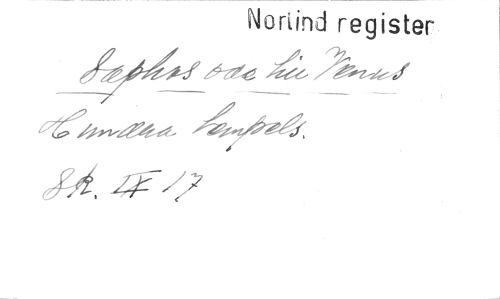 Norlind register
Saphos ode till Venus
Hundra tempels.
SR. IX 17